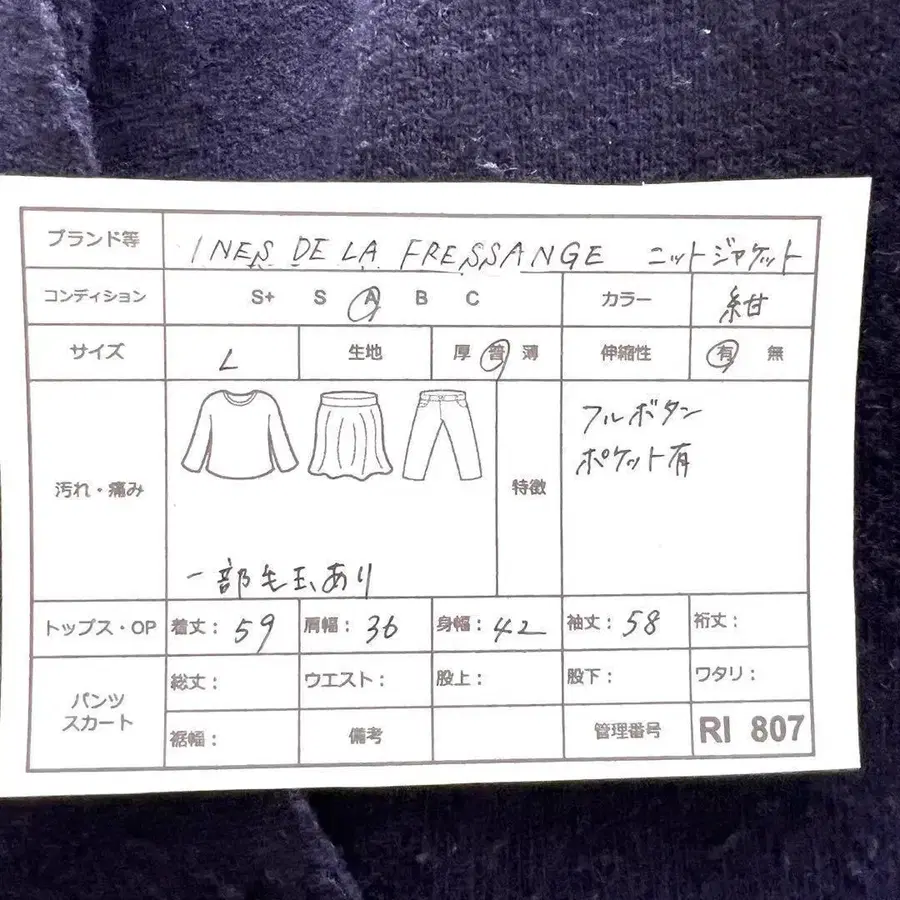 ブランド等 INES DE LA FRESSANGE ニットジャケット
コンディション S+ S A B C カラー 紺
サイズ L 生地 厚 普 薄 伸縮性 有 無
汚れ・痛み 一部毛玉あり 特徴 フルボタン
ポケット有
トップス・OP 着丈: 59 肩幅: 36 身幅: 42 袖丈: 58 裄丈:
パンツ
スカート
総丈: ウエスト: 股上: 股下: ワタリ:
裾幅: 備考 管理番号 RI 807